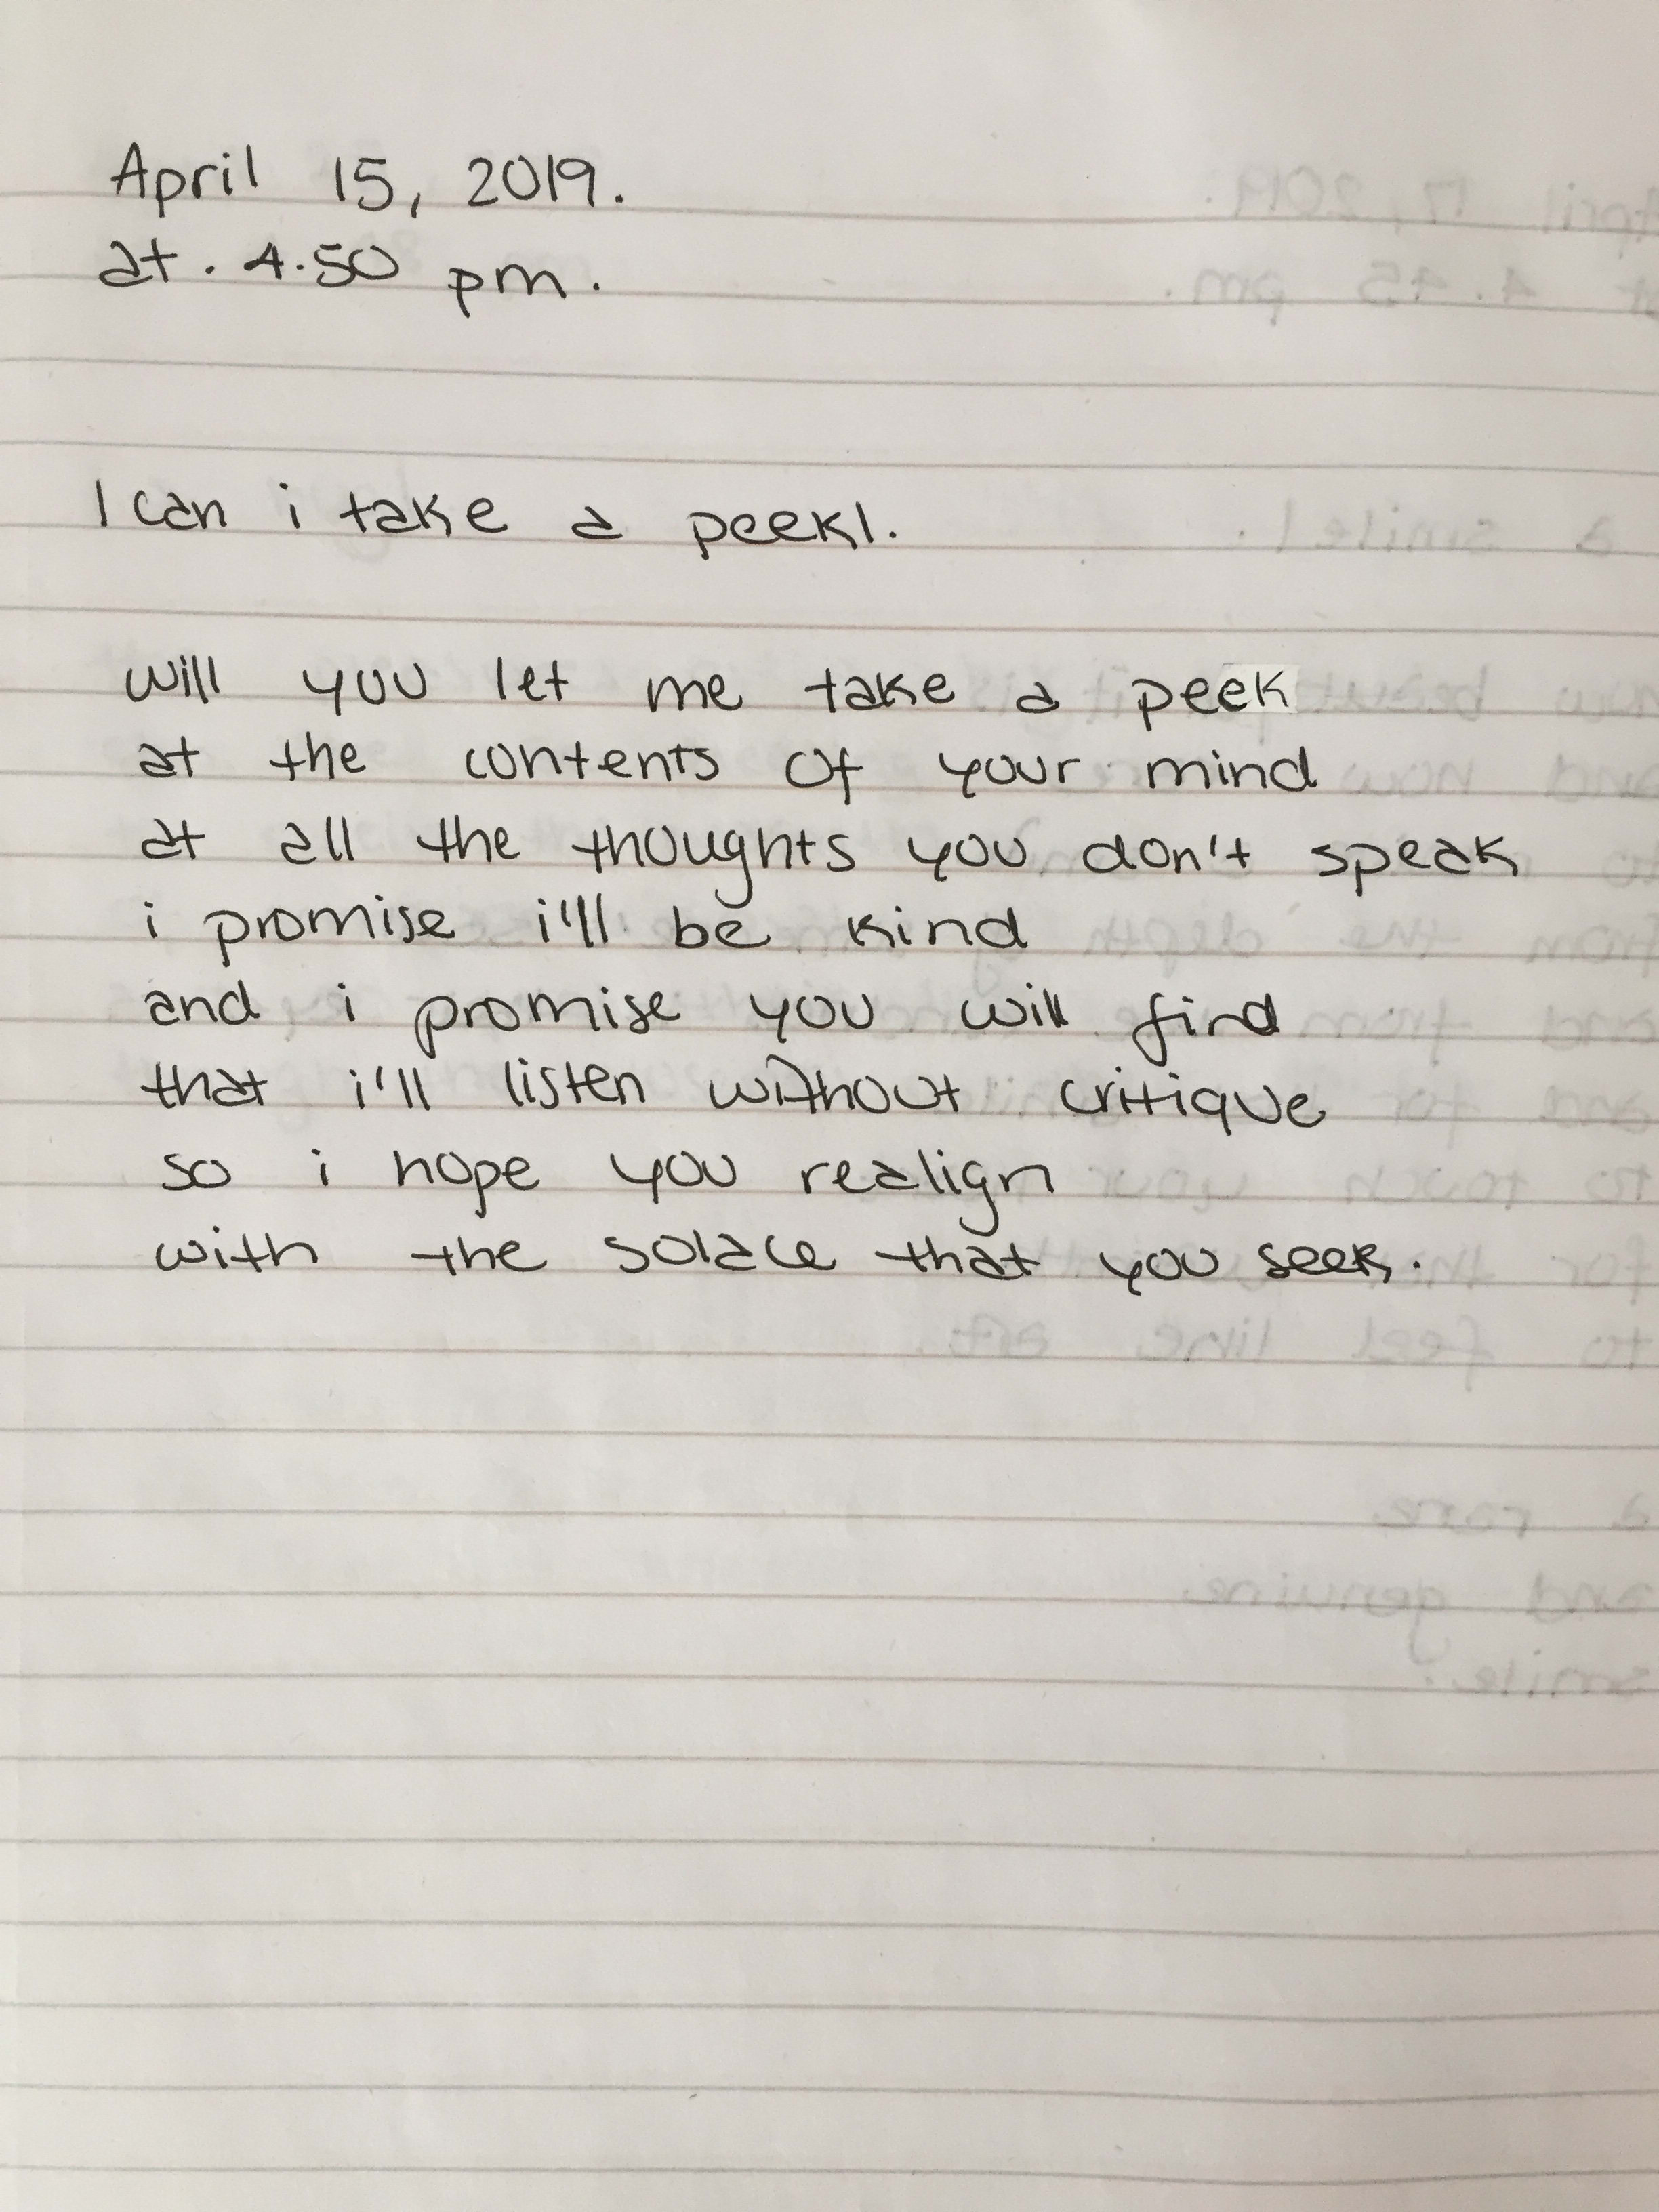 April 15, 2019.
at . 4.50 pm.
| can i take a peek|.
will you let me take a peek
at the contents of your mind
at all the thoughts you don't speak
i promise i'll be kind
and i promise you will find
that i'll listen without critique
so i hope you realign
with the solace that you seek.